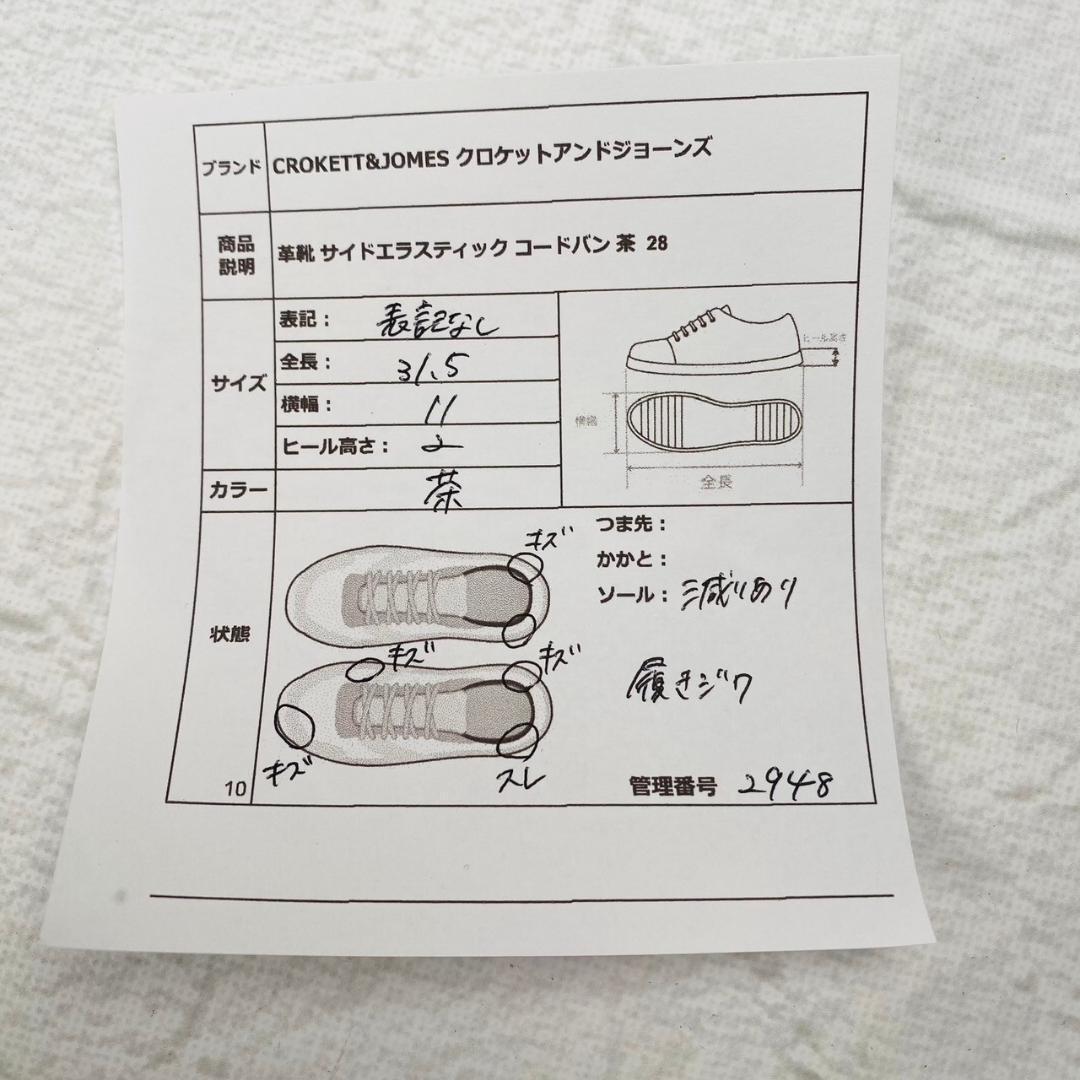 ブランド CROKETT&JOMES クロケットアンドジョーンズ
商品説明 革靴 サイドエラスティック コードバン 茶 28
サイズ
表記： 表記なし
全長： 31.5
横幅： 11
ヒール高さ： 2
ヒール高さ
横幅
全長
カラー 茶
状態
キズ
キズ
キズ
キズ
スレ
つま先：
かかと：
ソール： 減りあり
履きジワ
10
管理番号 2948